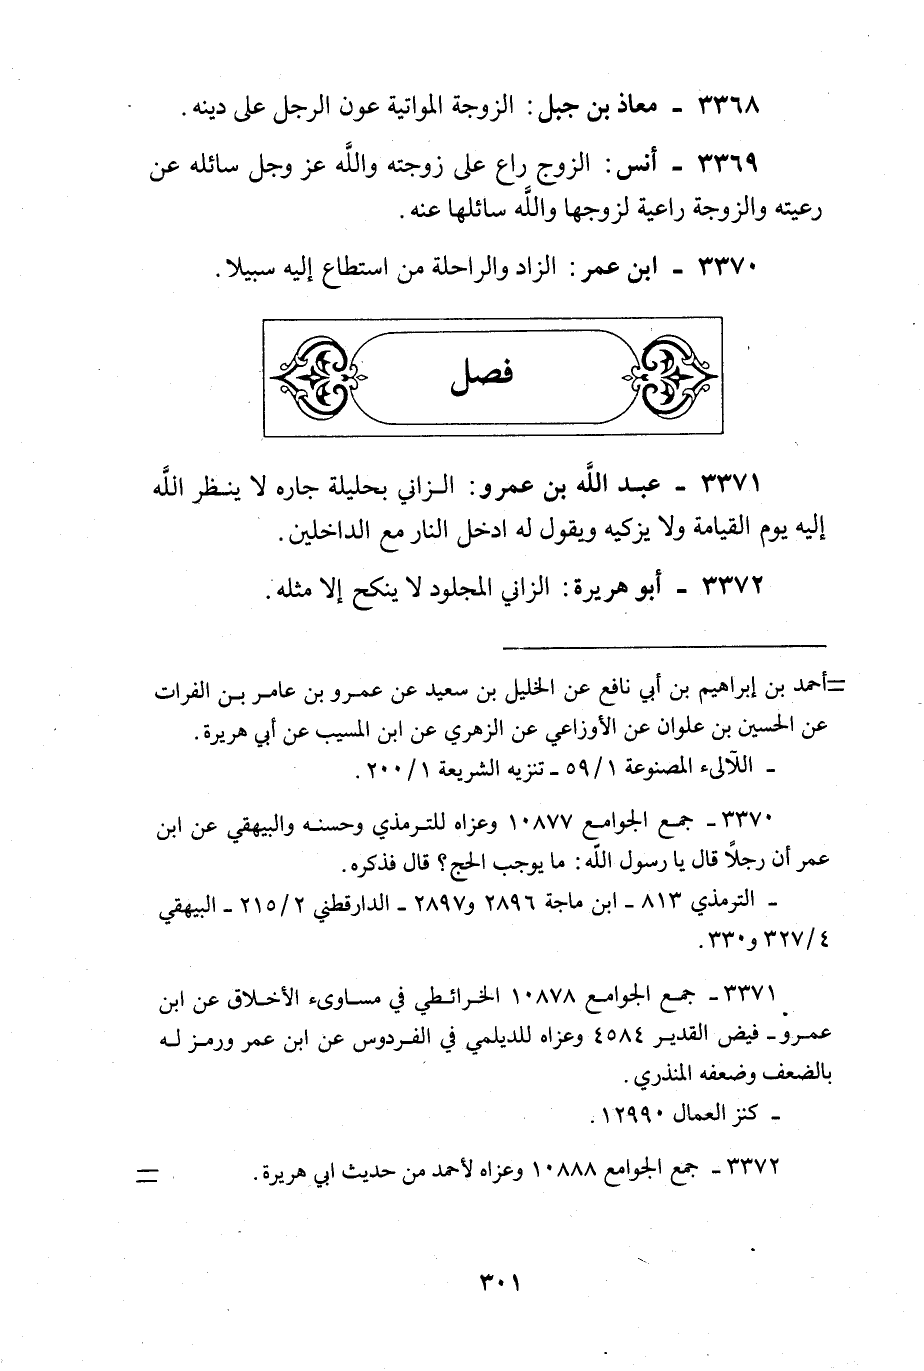 ٣٣٦٨ - معاذ بن جبل: الزوجة المواتية عون الرجل على دينه.
٣٣٦٩ - أنس: الزوج راع على زوجته واللَّه عز وجل سائله عن
رعيته والزوجة راعية لزوجها واللَّه سائلها عنه.
٣٣٧٠ - ابن عمر: الزاد والراحلة من استطاع إليه سبيلا.
فصل
٣٣٧١ - عبد اللَّه بن عمرو: الزاني بحليلة جاره لا ينظر اللَّه
إليه يوم القيامة ولا يزكيه ويقول له ادخل النار مع الداخلين.
٣٣٧٢ - أبو هريرة: الزاني المجلود لا ينكح إلا مثله.
=أحمد بن إبراهيم بن أبي نافع عن الخليل بن سعيد عن عمرو بن عامر بن الفرات
عن الحسين بن علوان عن الأوزاعي عن الزهري عن ابن المسيب عن أبي هريرة.
- اللآلىء المصنوعة ٥٩/١ - تنزيه الشريعة ٢٠٠/١.
٣٣٧٠ - جمع الجوامع ١٠٨٧٧ وعزاه للترمذي وحسنه والبيهقي عن ابن
عمر أن رجلاً قال يا رسول اللَّه: ما يوجب الحج؟ قال فذكره.
- الترمذي ٨١٣ - ابن ماجة ٢٨٩٦ و٢٨٩٧ - الدارقطني ٢١٥/٢ - البيهقي
٣٢٧/٤ و٣٣٠.
٣٣٧١ - جمع الجوامع ١٠٨٧٨ الخرائطي في مساوىء الأخلاق عن ابن
عمرو - فيض القدير ٤٥٨٤ وعزاه للديلمي في الفردوس عن ابن عمر ورمز له
بالضعف وضعفه المنذري.
- كنز العمال ١٢٩٩٠.
٣٣٧٢ - جمع الجوامع ١٠٨٨٨ وعزاه لأحمد من حديث ابي هريرة. =
٣٠١